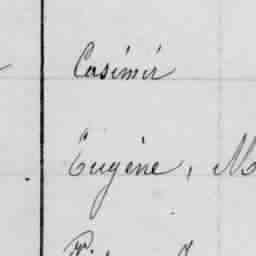 Casimir
Eugène, M